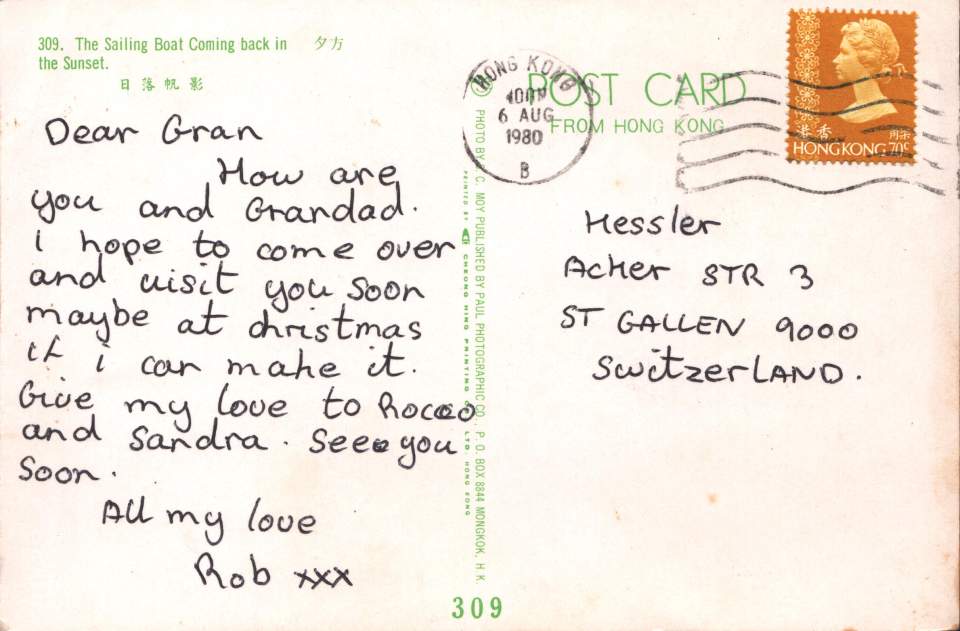 309. The Sailing Boat Coming back in
the Sunset.
夕方
日落帆影
Dear Gran
How are
you and Grandad.
i hope to come over
and visit you soon
maybe at christmas
if i can make it.
Give my love to Rocco
and Sandra. See you
soon.
All my love
Rob xxx
PHOTO BY C. MOY PUBLISHED BY PAUL PHOTOGRAPHIC CO., P. O. BOX 8844 MONGKOK, H. K.
PRINTED BY CHEONG HING PRINTING LTD. HONG KONG
309
POST CARD
FROM HONG KONG
HONG KONG
6 AUG
1980
B
香港
HONG KONG 70c
Hessler
Acker STR 3
ST GALLEN 9000
SwitzerLAND.